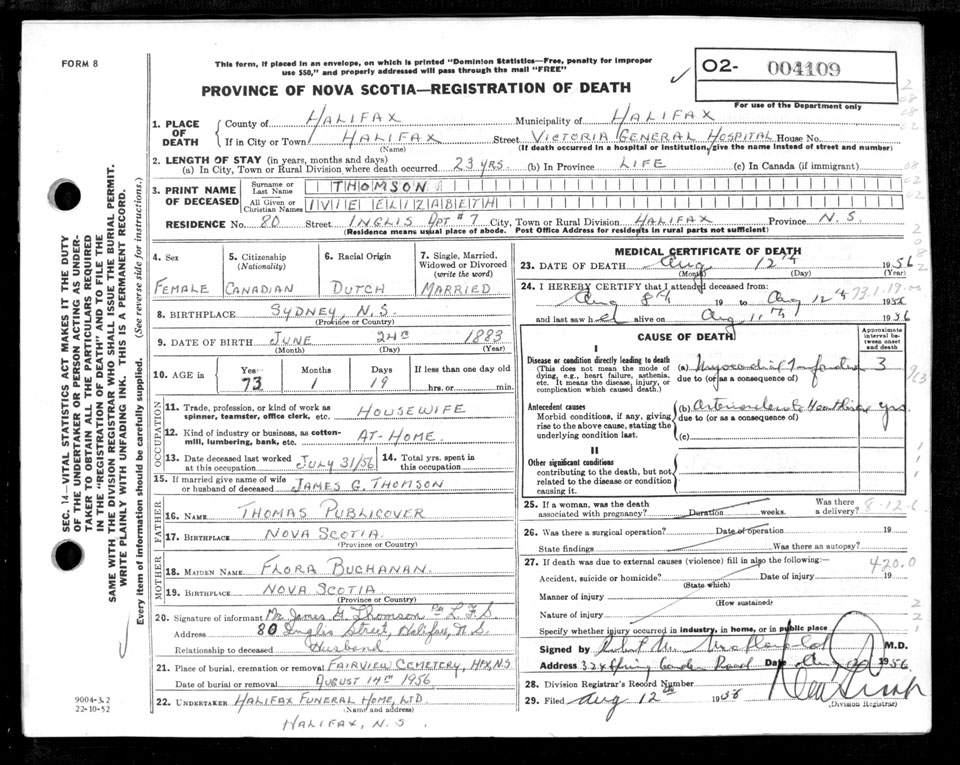 FORM 8
This form, if placed in an envelope, on which is printed "Dominion Statistics—Free, penalty for improper
use $50," and properly addressed will pass through the mail "FREE"
PROVINCE OF NOVA SCOTIA—REGISTRATION OF DEATH
02- 004109
For use of the Department only
SEC. 14—VITAL STATISTICS ACT MAKES IT THE DUTY
OF THE UNDERTAKER OR PERSON ACTING AS UNDER-
TAKER TO OBTAIN ALL THE PARTICULARS REQUIRED
IN THE "REGISTRATION OF DEATH" AND TO FILE THE
SAME WITH THE DIVISION REGISTRAR WHO SHALL ISSUE THE BURIAL PERMIT.
WRITE PLAINLY WITH UNFADING INK. THIS IS A PERMANENT RECORD.
Every item of information should be carefully supplied. (See reverse side for instructions.)
1. PLACE OF DEATH
County of HALIFAX Municipality of HALIFAX
If in City or Town HALIFAX Street VICTORIA GENERAL HOSPITAL House No.
(Name) (If death occurred in a hospital or institution, give the name instead of street and number)
2. LENGTH OF STAY (in years, months and days)
(a) In City, Town or Rural Division where death occurred 23 YRS. (b) In Province LIFE (c) In Canada (if immigrant)
3. PRINT NAME OF DECEASED
Surname or Last Name THOMSON
All Given or Christian Names IVIE ELIZABETH
RESIDENCE No. 80 Street INGLIS APT #7 City, Town or Rural Division HALIFAX Province N.S.
(Residence means usual place of abode. Post Office Address for residents in rural parts not sufficient)
4. Sex
FEMALE
5. Citizenship (Nationality)
CANADIAN
6. Racial Origin
DUTCH
7. Single, Married, Widowed or Divorced (write the word)
MARRIED
8. BIRTHPLACE SYDNEY, N.S.
(Province or Country)
9. DATE OF BIRTH JUNE 24th 1883
(Month) (Day) (Year)
10. AGE in Years Months Days If less than one day
73 1 19 hrs. or min.
OCCUPATION
11. Trade, profession, or kind of work as spinner, teamster, office clerk, etc. HOUSEWIFE
12. Kind of industry or business, as cotton-mill, lumbering, bank, etc. AT-HOME.
13. Date deceased last worked at this occupation JULY 31/56
14. Total yrs. spent in this occupation
15. If married give name of wife or husband of deceased JAMES G. THOMSON
FATHER
16. NAME THOMAS PUBLICOVER
17. BIRTHPLACE NOVA SCOTIA.
(Province or Country)
MOTHER
18. MAIDEN NAME FLORA BUCHANAN.
19. BIRTHPLACE NOVA SCOTIA
(Province or Country)
20. Signature of informant Mr James G Thomson Per L.F.S.
Address 80 Inglis Street, Halifax, N.S.
Relationship to deceased Husband
21. Place of burial, cremation or removal FAIRVIEW CEMETERY, HFX, N.S
Date of burial or removal AUGUST 14th 1956
22. UNDERTAKER HALIFAX FUNERAL HOME, LTD.
(Name and address)
HALIFAX, N.S.
9004-3.2
22-10-52
MEDICAL CERTIFICATE OF DEATH
23. DATE OF DEATH Aug 12th 1956
(Month) (Day) (Year)
24. I HEREBY CERTIFY that I attended deceased from:
Aug 8th 19 to Aug 12th 1956
73.1.19.00
and last saw her alive on Aug 11th 1956
CAUSE OF DEATH
Approximate interval between onset and death
I
Disease or condition directly leading to death
(This does not mean the mode of dying, e.g., heart failure, asthenia, etc. It means the disease, injury, or complication which caused death.)
(a) Myocardial Infarction 3
due to (or as a consequence of)
Antecedent causes
Morbid conditions, if any, giving rise to the above cause, stating the underlying condition last.
(b) yrs.
due to (or as a consequence of)
(c)
II
Other significant conditions
contributing to the death, but not related to the disease or condition causing it.
25. If a woman, was the death associated with pregnancy? Duration weeks. Was there a delivery?
8-12-6
26. Was there a surgical operation? Date of operation 19
State findings Was there an autopsy?
27. If death was due to external causes (violence) fill in also the following:—
420.0
Accident, suicide or homicide? Date of injury 19
(State which)
Manner of injury
(How sustained)
Nature of injury
Specify whether injury occurred in industry, in home, or in public place
Signed M.D.
Address 324 Spring Garden Road Date Aug 1956
28. Division Registrar's Record Number
29. Filed Aug 12th 1956
(Division Registrar)